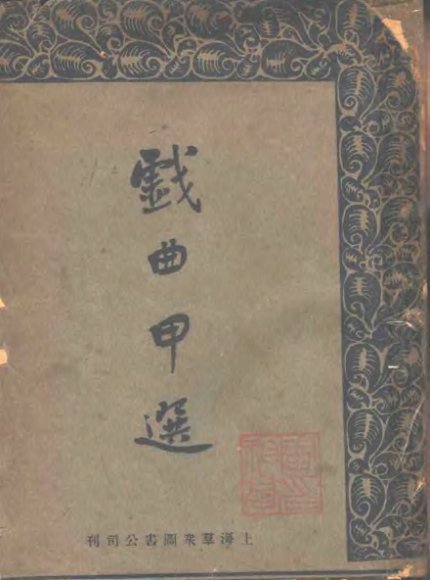 戲曲甲選
上海羣衆圖書公司刊